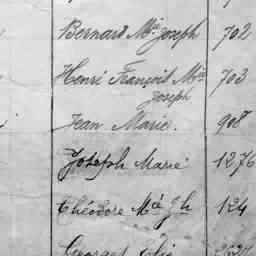 Bernard Mie Joseph 702
Henri François Mie 703
Joseph
Jean Marie. 908
Joseph Marie 1276
Théodore Mie Jh 124
Georges